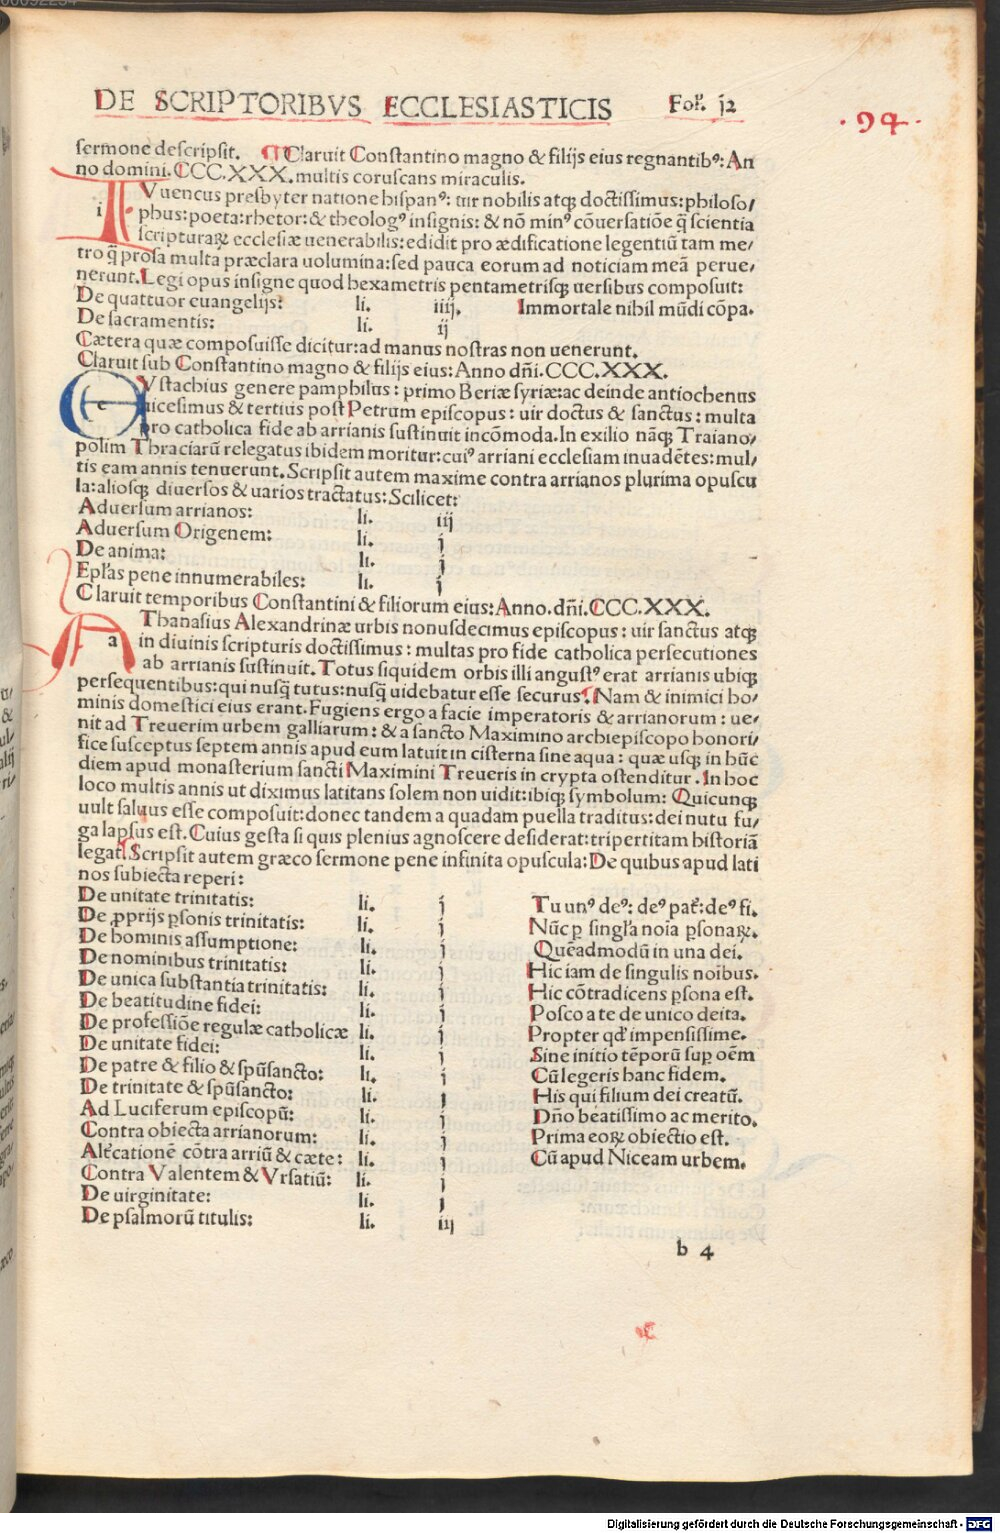 DE SCRIPTORIBVS ECCLESIASTICIS Fol. j2
.94.
sermone descripsit. ¶Claruit Constantino magno & filijs eius regnantibꝰ: An
no domini.CCC.XXX.multis coruscans miraculis.
i IVuencus presbyter natione hispanꝰ: uir nobilis atqꝫ doctissimus:philoso/
phus:poeta:rhetor:& theologꝰ insignis: & nō minꝰ cōuersatiōe q̄ scientia
scripturaꝝ ecclesiæ uenerabilis:edidit pro ædificatione legentiū tam me/
tro q̄ prosa multa præclara uolumina:sed pauca eorum ad noticiam meā perue/
nerunt.Legi opus insigne quod hexametris pentametrisqꝫ uersibus composuit:
De quattuor euangelijs: li. iiij. Immortale nihil mūdi cōpa.
De sacramentis: li. ij
Cætera quæ composuisse dicitur:ad manus nostras non uenerunt.
Claruit sub Constantino magno & filijs eius:Anno dn̄i.CCC.XXX.
e EVstachius genere pamphilus: primo Beriæ syriæ:ac deinde antiochenus
uicesimus & tertius post Petrum episcopus: uir doctus & sanctus: multa
pro catholica fide ab arrianis sustinuit incōmoda.In exilio nāqꝫ Traiano/
polim Thraciarū relegatus ibidem moritur:cuiꝰ arriani ecclesiam inuadētes:mul/
tis eam annis tenuerunt.Scripsit autem maxime contra arrianos plurima opuscu
la:aliosqꝫ diuersos & uarios tractatus:Scilicet:
Aduersum arrianos: li. iij
Aduersum Origenem: li. j
De anima: li. j
Epl̄as pene innumerabiles: li. j
Claruit temporibus Constantini & filiorum eius:Anno.dn̄i.CCC.XXX.
a AThanasius Alexandrinæ urbis nonusdecimus episcopus: uir sanctus atqꝫ
in diuinis scripturis doctissimus: multas pro fide catholica persecutiones
ab arrianis sustinuit.Totus siquidem orbis illi angustꝰ erat arrianis ubiqꝫ
persequentibus:qui nusq̄ tutus:nusq̄ uidebatur esse securus.¶Nam & inimici ho/
minis domestici eius erant.Fugiens ergo a facie imperatoris & arrianorum: ue/
nit ad Treuerim urbem galliarum: & a sancto Maximino archiepiscopo honori/
fice susceptus septem annis apud eum latuit in cisterna sine aqua: quæ usqꝫ in hūc
diem apud monasterium sancti Maximini Treueris in crypta ostenditur.In hoc
loco multis annis ut diximus latitans solem non uidit:ibiqꝫ symbolum: Quicunqꝫ
uult saluus esse composuit:donec tandem a quadam puella traditus:dei nutu fu/
ga lapsus est.Cuius gesta si quis plenius agnoscere desiderat:tripertitam historiā
legat.Scripsit autem græco sermone pene infinita opuscula:De quibus apud lati
nos subiecta reperi:
De unitate trinitatis: li. j Tu unꝰ deꝰ: deꝰ pat̄: deꝰ fi.
De ꝓprijs ꝑsonis trinitatis: li. j Nūc ꝑ singl̄a noīa ꝑsonaꝝ.
De hominis assumptione: li. j Quēadmodū in una dei.
De nominibus trinitatis: li. j Hic iam de singulis noībus.
De unica substantia trinitatis: li. j Hic cōtradicens ꝑsona est.
De beatitudine fidei: li. j Posco a te de unico deita.
De professiōe regulæ catholicæ li. j Propter qd' impensissime.
De unitate fidei: li. j Sine initio tēporū suꝑ oēm
De patre & filio & spū̄sancto: li. j Cū legeris hanc fidem.
De trinitate & spū̄sancto: li. j His qui filium dei creatū.
Ad Luciferum episcopū: li. j Dn̄o beatissimo ac merito.
Contra obiecta arrianorum: li. j Prima eoꝝ obiectio est.
Alt̄catione cōtra arriū & cæte: li. j Cū apud Niceam urbem.
Contra Valentem & Vrsatiū: li. j
De uirginitate: li. j
De psalmorū titulis: li. iij
b 4
Digitalisierung gefördert durch die Deutsche Forschungsgemeinschaft - DFG